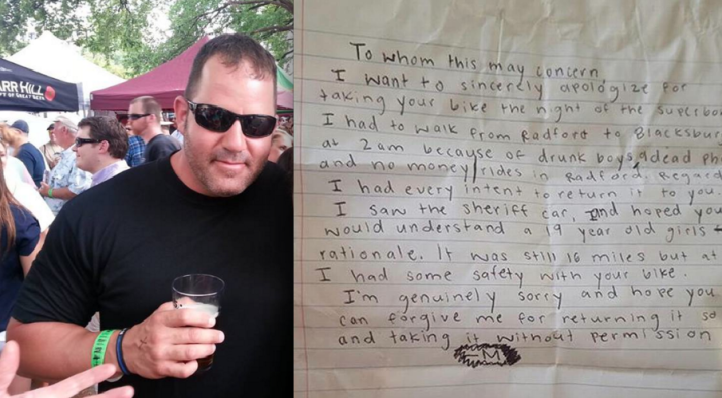 ARR HILL
FT OF GREAT BEER
To whom this may concern
I want to sincerely apologize for
taking your bike the night of the superbow
I had to walk from Radford to Blacksbur
at 2am because of drunk boys, a dead ph
and no money/rides in Radford. Regard
I had every intent to return it to you.
I saw the sheriff car, and hoped you
would understand a 19 year old girls
rationale. It was still 16 miles but at
I had some safety with your bike.
I'm genuinely sorry and hope you
can forgive me for returning it so
and taking it without permission
-M